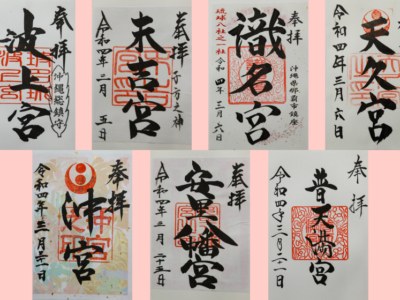 奉拝
波上宮
沖縄総鎮守
奉拝
末吉宮
子方之神
令和四年二月五日
奉拝
識名宮
琉球八社之一社
沖縄県那覇市鎮座
令和四年三月六日
奉拝
天久宮
令和四年三月六日
奉拝
沖宮
令和四年三月二一日
奉拝
安里八幡宮
令和四年二月二十五日
奉拝
普天満宮
令和四年三月二一日